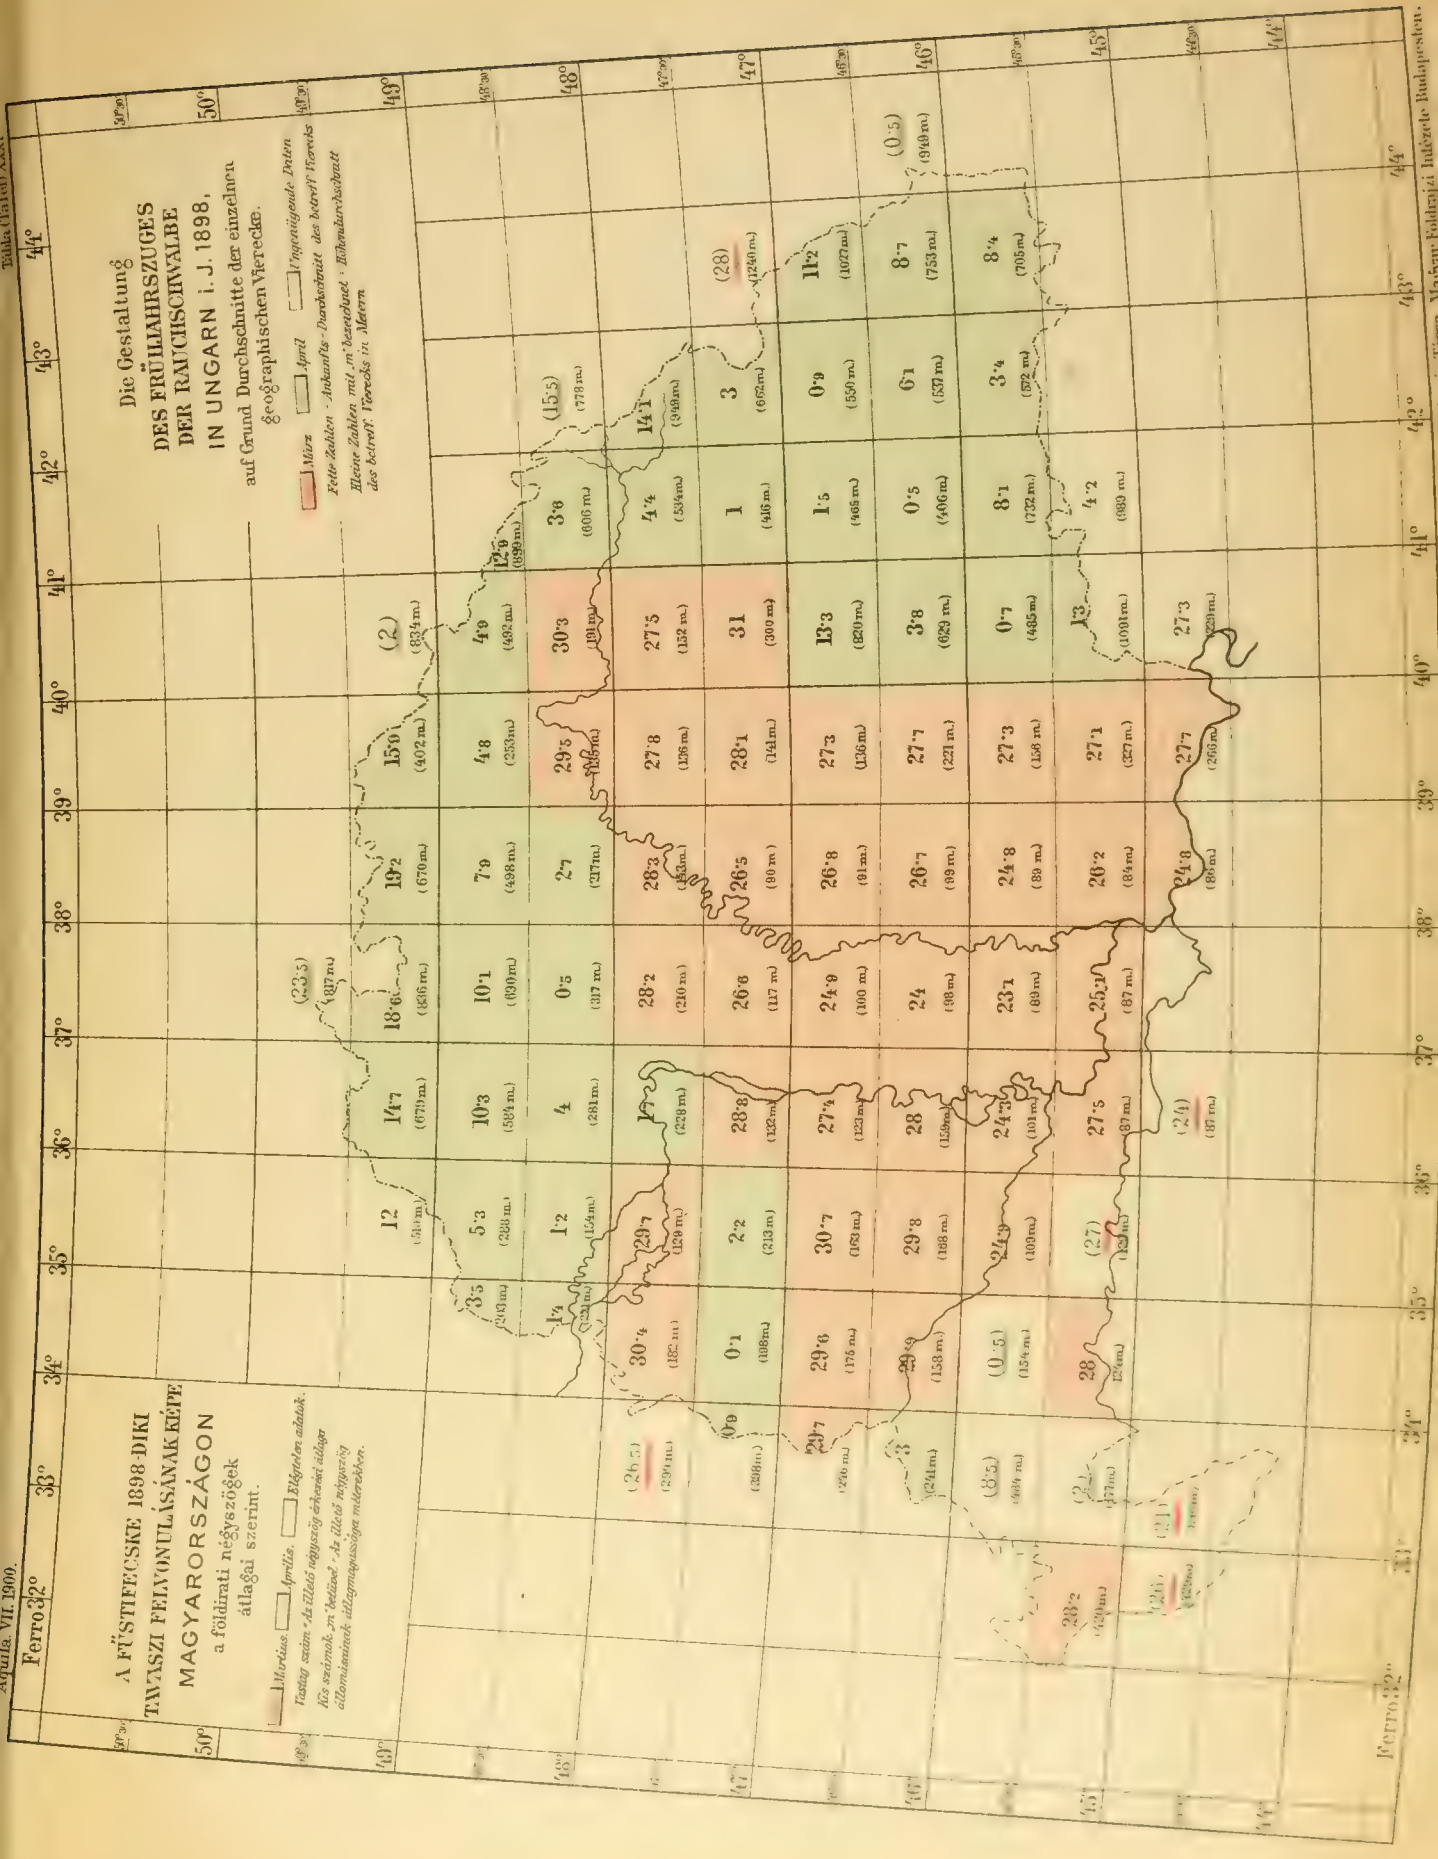 Aquila. VII. 1900.
Ferro 32°
33°
34°
35°
36°
37°
38°
39°
40°
41°
42°
43°
44°
A FÜSTIFECSKE 1898-DIKI
TAVASZI FELVONULÁSÁNAK KÉPE
MAGYARORSZÁGON
a földirati négyszögek
átlagai szerint.
Martius. Április. Elégtelen adatok.
Vastag szám - Az illető négyszög érkezési átlaga
Kis számok „m” betüvel - Az illető négyszög
állomásainak átlagmagassága méterekben.
Die Gestaltung
DES FRÜHJAHRSZUGES
DER RAUCHSCHWALBE
IN UNGARN i. J. 1898,
auf Grund Durchschnitte der einzelnen
geographischen Vierecke.
März April Ungenügende Daten
Fette Zahlen - Ankunfts-Durchschnitt des betreff. Vierecks
Kleine Zahlen mit „m” bezeichnet - Höhendurchschnitt
des betreff. Vierecks in Metern
50°30'
50°
49°
48°30'
48°
47°30'
47°
46°30'
46°
45°30'
45°
44°30'
44°
(23·5)
(817 m.)
12
14·7
(679 m.)
18·6
(836 m.)
19·2
(670 m.)
15·9
(402 m.)
(2)
(834 m.)
3·5
5·3
(288 m.)
10·3
(584 m.)
10·1
(690 m.)
7·9
(498 m.)
4·8
(253 m.)
4·9
(492 m.)
12·9
(899 m.)
1·4
1·2
(154 m.)
4
(281 m.)
0·5
(317 m.)
2·7
(217 m.)
29·5
30·3
(191 m.)
3·6
(606 m.)
(15·5)
(778 m.)
(26·5)
(294 m.)
30·4
(182 m.)
29·7
(129 m.)
1·7
(228 m.)
28·2
(210 m.)
28·3
27·8
(136 m.)
27·5
(152 m.)
4·4
(534 m.)
14·1
(949 m.)
0·9
(298 m.)
0·1
(198 m.)
2·2
(213 m.)
28·8
(132 m.)
26·6
(117 m.)
26·5
(90 m.)
28·1
(141 m.)
31
(300 m.)
1
(416 m.)
3
(662 m.)
(28)
(1240 m.)
29·7
29·6
(175 m.)
30·7
(163 m.)
27·4
(123 m.)
24·9
(100 m.)
26·8
(91 m.)
27·3
(136 m.)
13·3
(820 m.)
1·5
(465 m.)
0·9
(550 m.)
11·2
(1027 m.)
3
(241 m.)
29·9
(158 m.)
29·8
(168 m.)
28
(159 m.)
24
(98 m.)
26·7
(99 m.)
27·7
(221 m.)
3·8
(629 m.)
0·5
(406 m.)
6·1
(537 m.)
8·7
(753 m.)
(0·5)
(949 m.)
(8·5)
(0·5)
(154 m.)
24·9
(109 m.)
24·3
(101 m.)
23·1
(89 m.)
24·8
(89 m.)
27·3
(158 m.)
0·7
(485 m.)
8·1
(732 m.)
3·4
(572 m.)
8·4
(705 m.)
28·2
28
(27)
27·5
(87 m.)
25·1
(87 m.)
26·2
(84 m.)
27·1
(327 m.)
1·3
(1091 m.)
4·2
(989 m.)
(26)
(21)
(24)
(87 m.)
24·8
(86 m.)
27·7
(266 m.)
27·3
Ferro 32°
33°
34°
35°
36°
37°
38°
39°
40°
41°
42°
43°
44°
Magyar Földrajzi Intézete Budapesten.